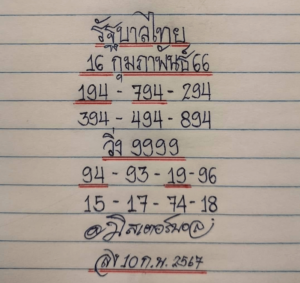 รัฐบาลไทย
16 กุมภาพันธ์ 66
194 - 794 - 294
394 - 494 - 894
วิ่ง 9999
94 - 93 - 19 - 96
15 - 17 - 74 - 18
อ.มิสเตอร์บอล
ลง 10 ก.พ. 2567